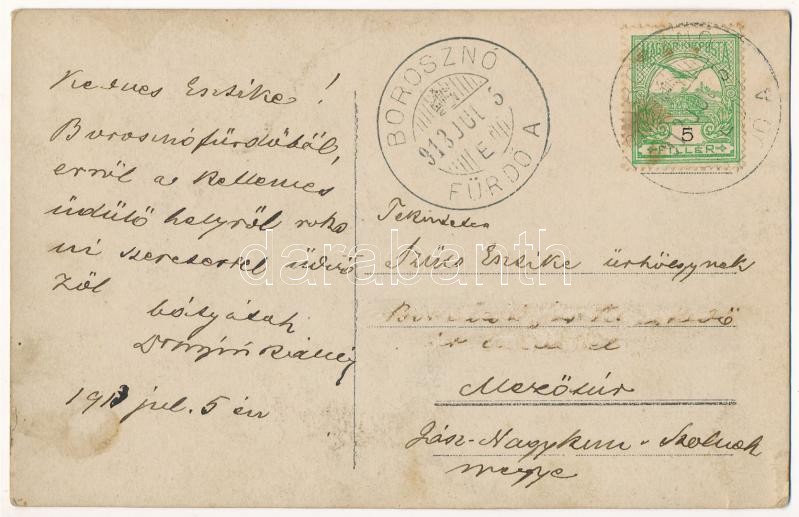 Kedves Esztike!
Borosznófürdőből,
erről a kellemes
üdülő helyről roko
ni szeretettel üdvö
zöl
bátyátok
1913 jul. 5 én
BOROSZNÓ
913 JUL 5
E
FÜRDŐ A
MAGYAR KIR. POSTA
5
FILLÉR
Tekintetes
Szűcs Esztike úrhölgynek
Mezőtúr
Jász-Nagykun-Szolnok
megye
darabanth